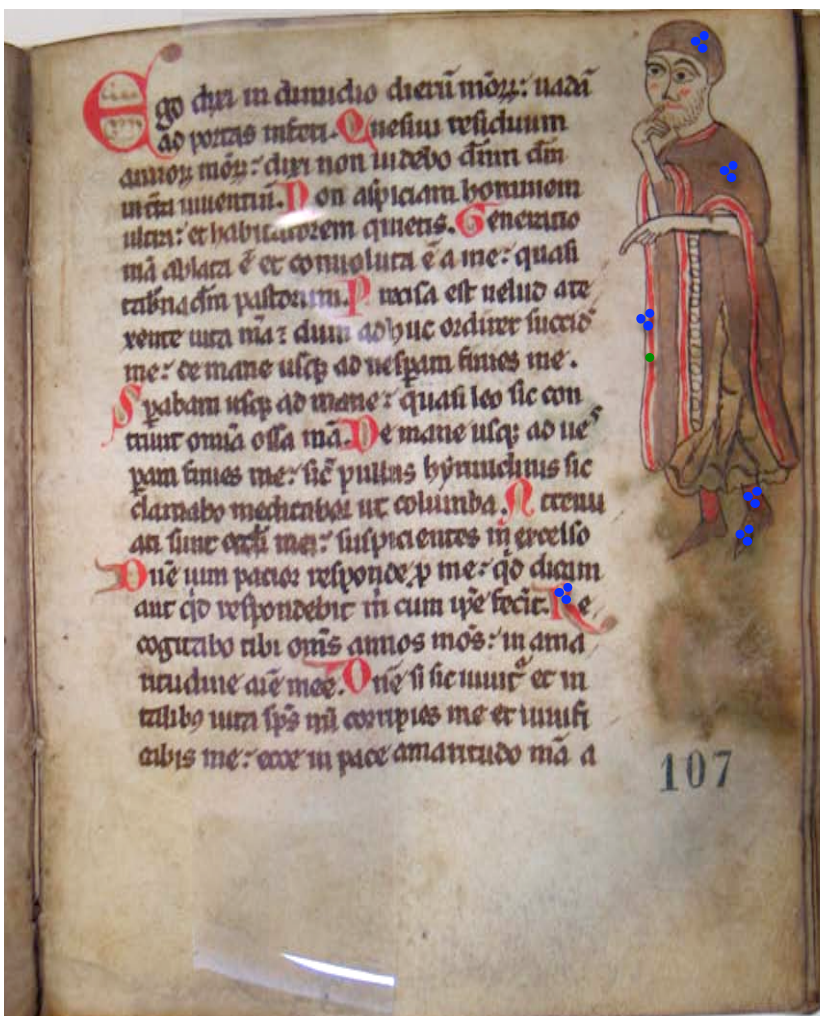 Ego dixi in dimidio dierū mōꝝ: uadā
ad portas inferi. Quesiui residuum
annoꝝ mōꝝ: dixi non uidebo dn̄m dm̄
in t̄ra uiuentiū. Non aspiciam hominem
ultra: et habitatorem quietis. Generatio
mā ablata ē et conuoluta ē a me: quasi
tab̄nac̄lm pastorum. Precisa est uelud a te
xente uita mā: dum adhuc ordirer succidꝰ
me: de mane usqꝫ ad uesꝑam finies me.
Sꝑabam usqꝫ ad mane: quasi leo sic con
triuit omīa ossa mā. De mane usqꝫ ad ueˢ
ꝑam finies me: sic̄ pullus hyrundinis sic
clamabo meditabor ut columba. Attenu
ati sunt oc̄li mei: suspicientes in excelso
Dn̄e uim pacior responde ꝓ me: qͥd dicam
aut qͥd respondebit m̄ cum ip̄e fec̄it. Re
cogitabo tibi om̄s annos mōs: in ama
ritudine aīe mee. Dn̄e si sic uiuit᷑ et in
talibꝰ uita sp̄s mī corripies me et uiuifi
cabis me: ecce in pace amaritudo mā a
107